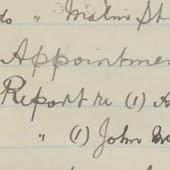 do " Malin St
Appointme
Report re (1) A
" (1) John